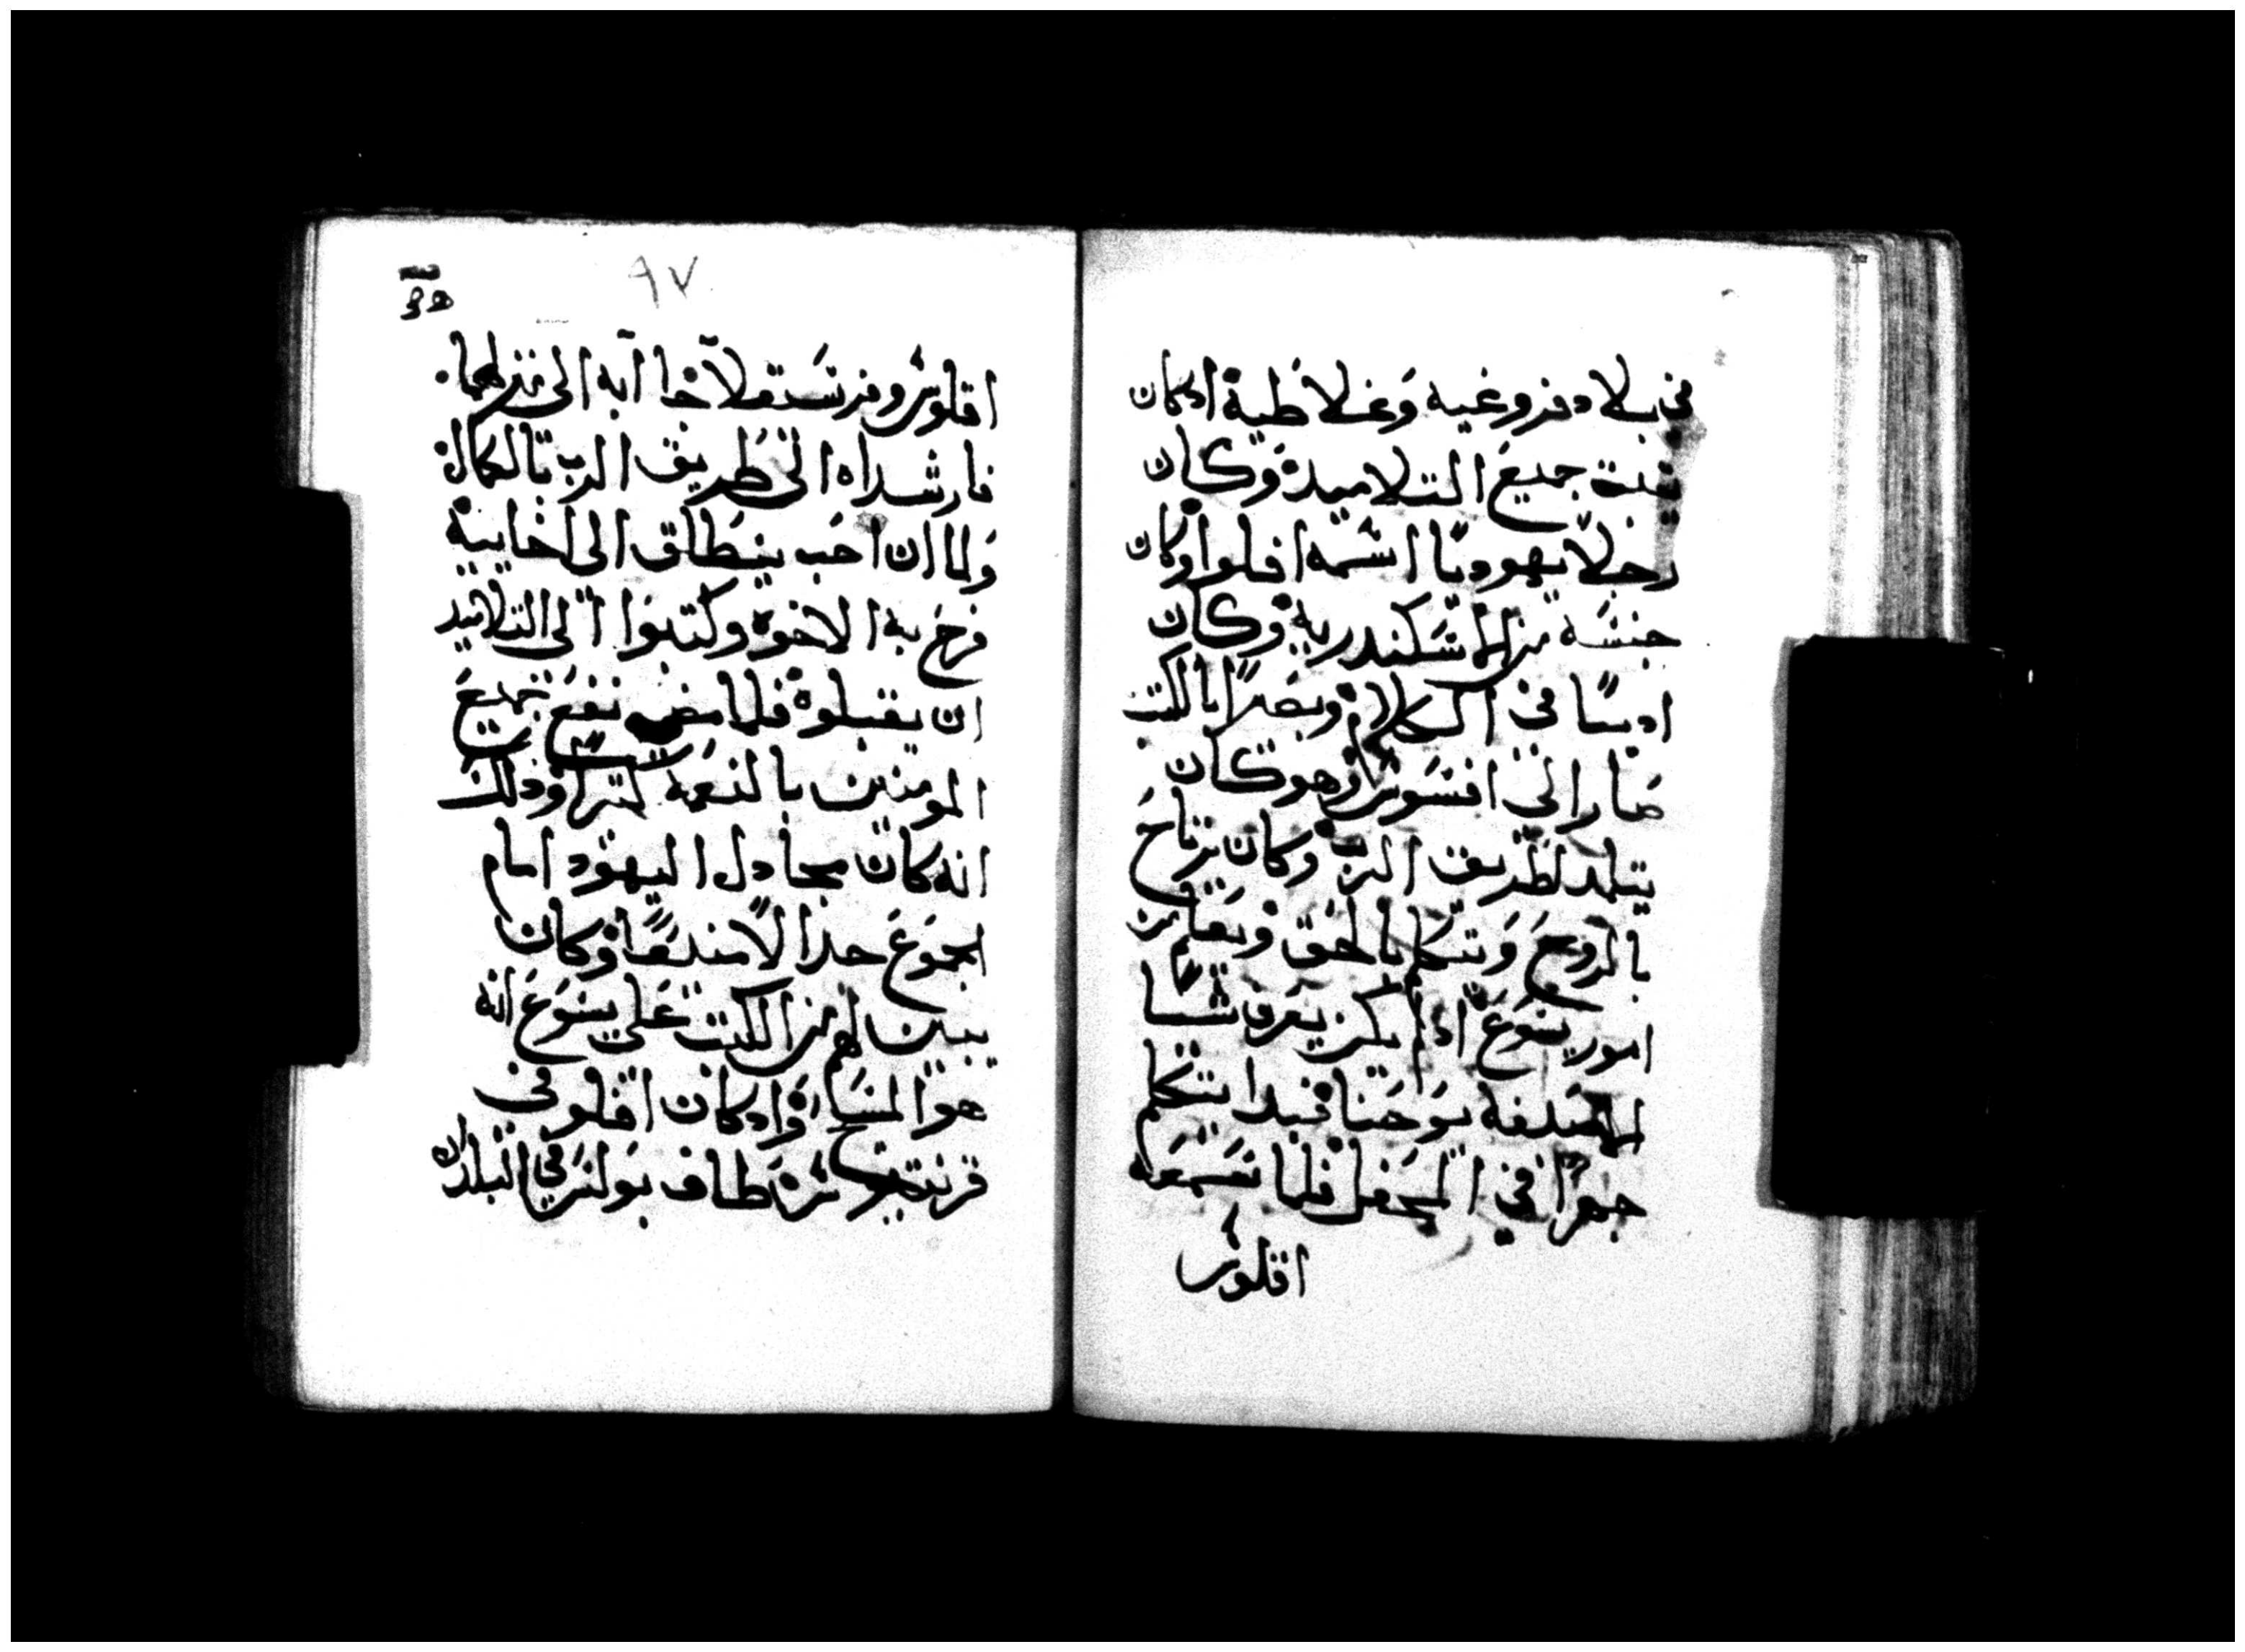 في بلاد فروغيه وغلاطية اذ كان
يثبت جميع التلاميذ وكان
رجلا يهوديا اسمه افلوا وكان
جنسه من الاسكندرية وكان
اديبا في الكلام وبصيرا بالكتب
صار الى افسوس وهو كان
يتلمد لطريق الرب وكان يرتاح
بالروح ويتكلم بالحق ويعلم من
امور يسوع اذ لم يكن يعرف شيا
الا صبغة يوحنا فبدا يتكلم
جهرا في المحفل فلما سمعه
اقلوس
٩٧
اقلوس وفرسقلا جا ابه الى منزلهما.
فارشداه الى طريق الرب بالكمال
ولما ان احب ينطلق الى اخاييه
فرح به الاخوة وكتبوا الى التلاميد
ان يقبلوه فلما مضى نفع جميع
المومنين بالنعمة كتيرا وذلك
انه كان يجادل اليهود امام
الجموع جدالا مندفعا وكان
يبين لهم من الكتب على يسوع انه
هوا المسيح واذ كان افلو في
قرنتيه طاف بولس في البلدان